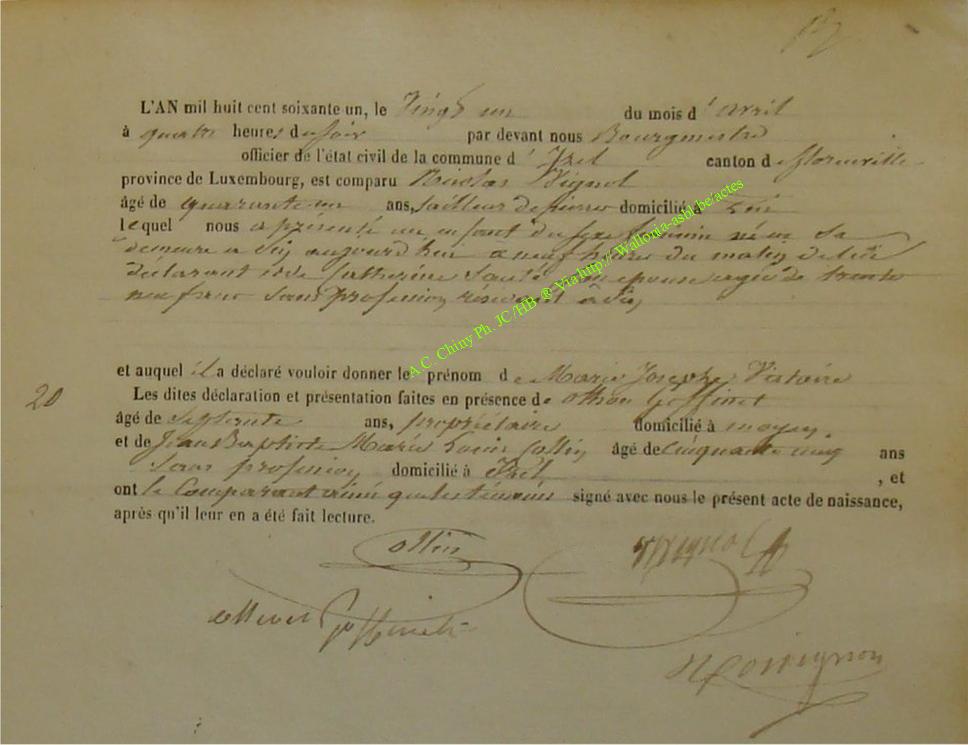 L'AN mil huit cent soixante un, le Vingt un du mois d' avril
à quatre heures du soir par devant nous Bourgmestre
officier de l'état civil de la commune d' Izel canton de florenville
province de Luxembourg, est comparu Nicolas Pignol
âgé de quarante un ans, tailleur de pierre domicilié à
lequel nous a présenté un enfant du sexe féminin né en sa
demeure a aujourd'hui à neuf heures du matin de lui
déclarant et de Catherine son épouse agée de trente
neuf ans sans profession, résidant à
et auquel il a déclaré vouloir donner le prénom de Marie Josephe Victoire
20
Les dites déclaration et présentation faites en présence de othon Goffinet
âgé de septante ans, propriétaire domicilié à moyen.
et de Jean Baptiste Marie Louis Collin âgé de cinquante cinq ans
sans profession, domicilié à Izel , et
ont le Comparant ainsi que les témoins signé avec nous le présent acte de naissance,
après qu'il leur en a été fait lecture.
ollin
Pignol
Goffinet
Rossignon
A.C. Chiny Ph. JC/HB ® Via http://Wallonia-asbl.be/actes